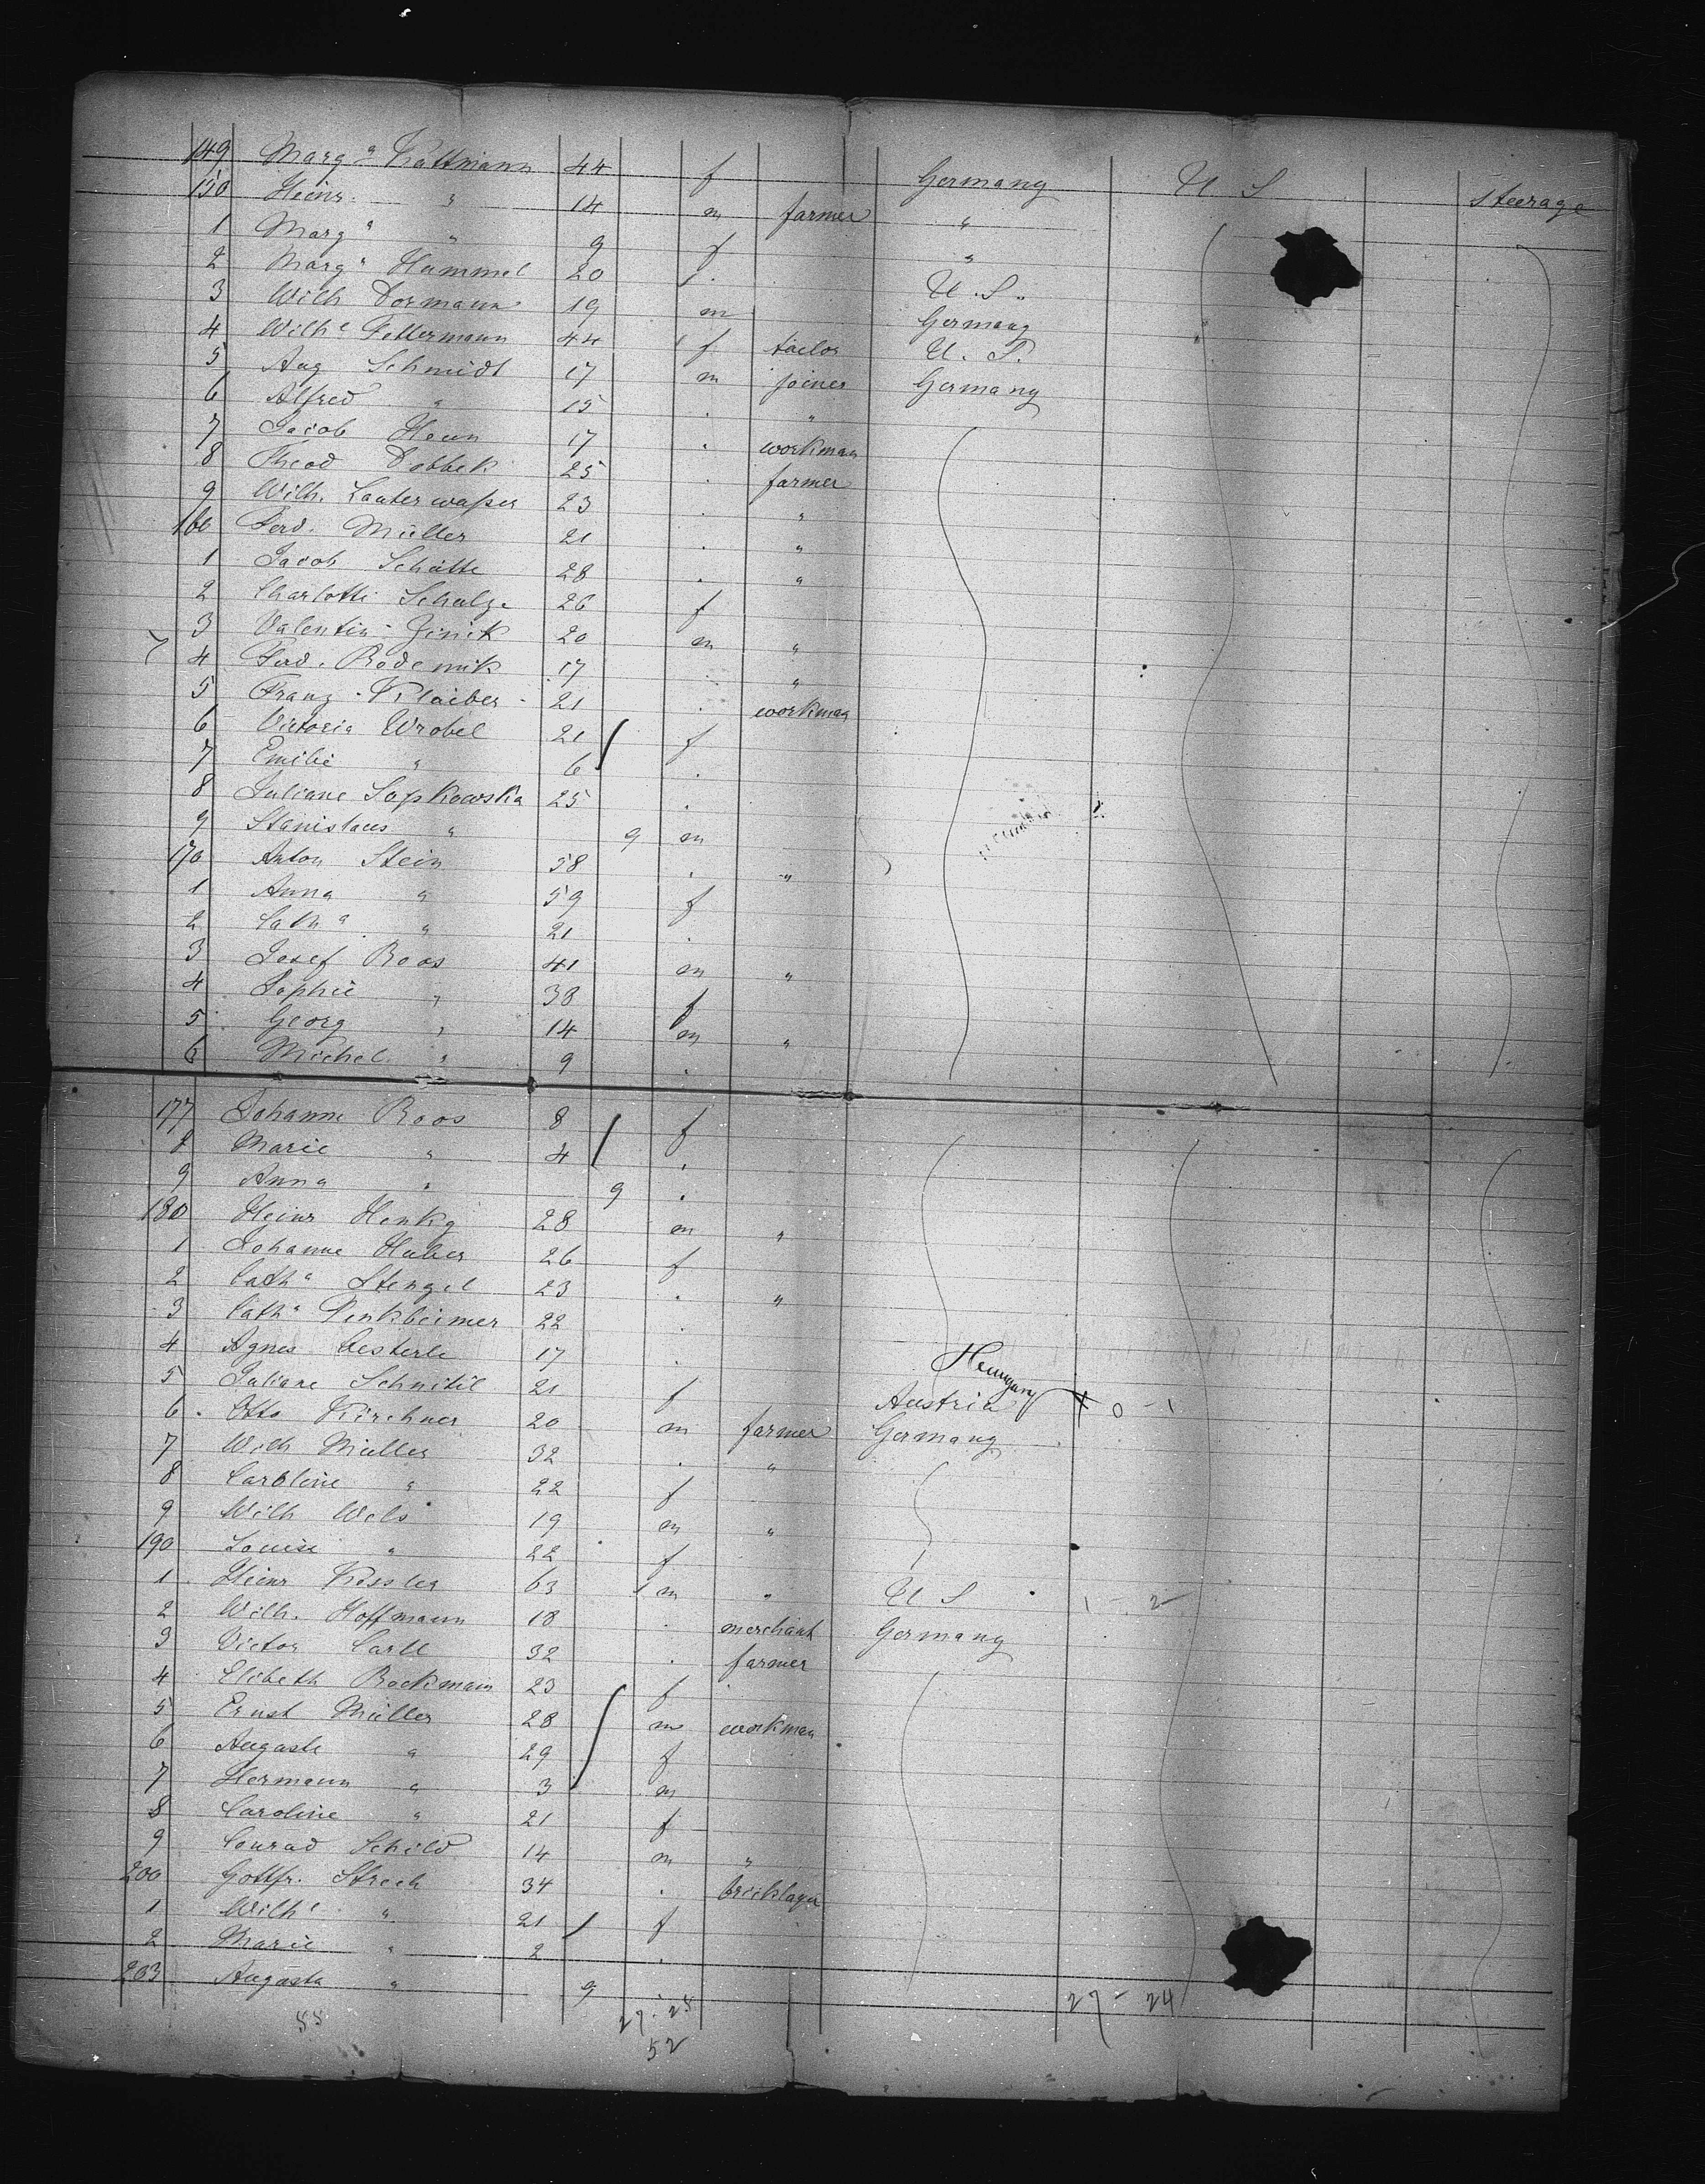 149 Marg^a Kattmann 44 f Germany U S steerage
150 Heinr. " 14 m farmer "
1 Marg^a " 9 f "
2 Marg^a Hammel 20 . U. S.
3 Wilh Dormann 19 m Germany
4 Wilh^e Fellermann 44 f tailor U. S.
5 Aug Schmidt 17 m joiner Germany
6 Alfred " 15 . "
7 Jacob Heun 17 . workman
8 Theod Dobbek 25 . farmer
9 Wilh. Lauterwaßer 23 . "
160 Ferd. Müller 21 . "
1 Jacob Schütte 28 . "
2 Charlotte Schulze 26 f
3 Valentin Jinik 20 m "
4 Ferd. Rodemik 17 . "
5 Franz Klaiber 21 . workman
6 Victoria Wrobel 21 f
7 Emilie " 6 .
8 Juliane Sopkowska 25 .
9 Stanislaus " 9 m
170 Anton Stein 58 . "
1 Anna " 59 f
2 Cath^a " 21 .
3 Josef Roos 41 m "
4 Sophie " 38 f
5 Georg " 14 m "
6 Michel " 9 .
177 Johanne Roos 8 f
8 Marie " 4 .
9 Anna " 9 .
180 Heinr Henkg 28 m "
1 Johanne Huber 26 f
2 Cath^a Stengel 23 . "
3 Cath^a Penkbeimer 22 .
4 Agnes Oesterle 17 .
Hungary
5 Juliane Schnitil 21 f Austria 0 - 1
6 Otto Kirchner 20 m farmer Germany
7 Wilh Müller 32 . "
8 Caroline " 22 f
9 Wilh Wels 19 m "
190 Louise " 22 f
1 Heinr Kessler 63 m " U S 1 - 2
2 Wilh. Hoffmann 18 . merchant Germany
3 Victor Carll 32 . farmer
4 Elibeth Bockmann 23 f
5 Ernst Müller 28 m workman
6 Auguste " 29 f
7 Hermann " 3 m
8 Caroline " 21 f
9 Conrad Schild 14 m "
200 Gottfr. Strech 34 . bricklayer
1 Wilh^e " 21 f
2 Marie " 2 .
203 Augusta " 9
27 - 24
55 27 - 25
52